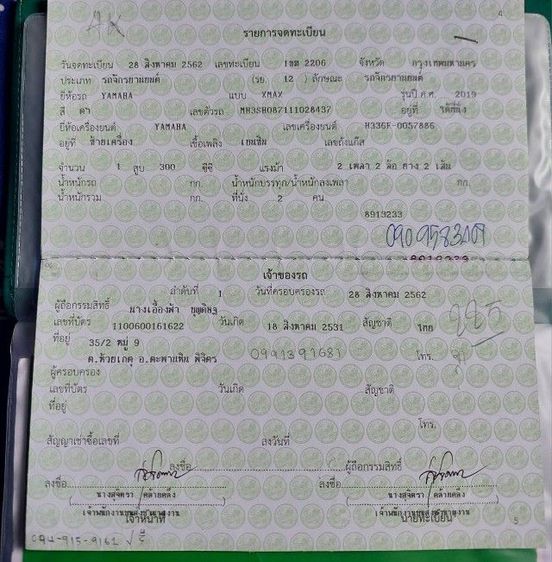 4
AK
รายการจดทะเบียน
วันจดทะเบียน 28 สิงหาคม 2562 เลขทะเบียน 2206 จังหวัด กรุงเทพมหานคร
ประเภท รถจักรยานยนต์ (รย. 12) ลักษณะ รถจักรยานยนต์
ยี่ห้อรถ YAMAHA แบบ XMAX รุ่นปี ค.ศ. 2019
สี ดำ เลขตัวรถ MH3SH087111028437 อยู่ที่
ยี่ห้อเครื่องยนต์ YAMAHA เลขเครื่องยนต์ H336F-0057886
อยู่ที่ ซ้ายเครื่อง เชื้อเพลิง เบนซิน เลขถังแก๊ส
จำนวน 1 สูบ 300 ซีซี แรงม้า 2 เพลา 2 ล้อ ยาง 2 เส้น
น้ำหนักรถ กก. น้ำหนักบรรทุก/น้ำหนักลงเพลา กก.
น้ำหนักรวม กก. ที่นั่ง 2 คน
8913233
เจ้าของรถ
ลำดับที่ 1 วันที่ครอบครองรถ 28 สิงหาคม 2562
ผู้ถือกรรมสิทธิ์ นางเอื้องฟ้า
เลขที่บัตร 1100600161622 วันเกิด 18 สิงหาคม 2531 สัญชาติ ไทย
ที่อยู่ 35/2 หมู่ 9
ต.ห้วยเกตุ อ.ตะพานหิน พิจิตร 0991397681 โทร.
ผู้ครอบครอง
เลขที่บัตร วันเกิด สัญชาติ
ที่อยู่
โทร.
สัญญาเช่าซื้อเลขที่ ลงวันที่
ลงชื่อ ผู้ถือกรรมสิทธิ์
ลงชื่อ ลงชื่อ
นางสุจิตรา คล้ายคลึง นางสุจิตรา คล้ายคลึง
เจ้าพนักงานขนส่งชำนาญงาน เจ้าพนักงานขนส่งชำนาญงาน
เจ้าหน้าที่ นายทะเบียน
5
094-915-9162